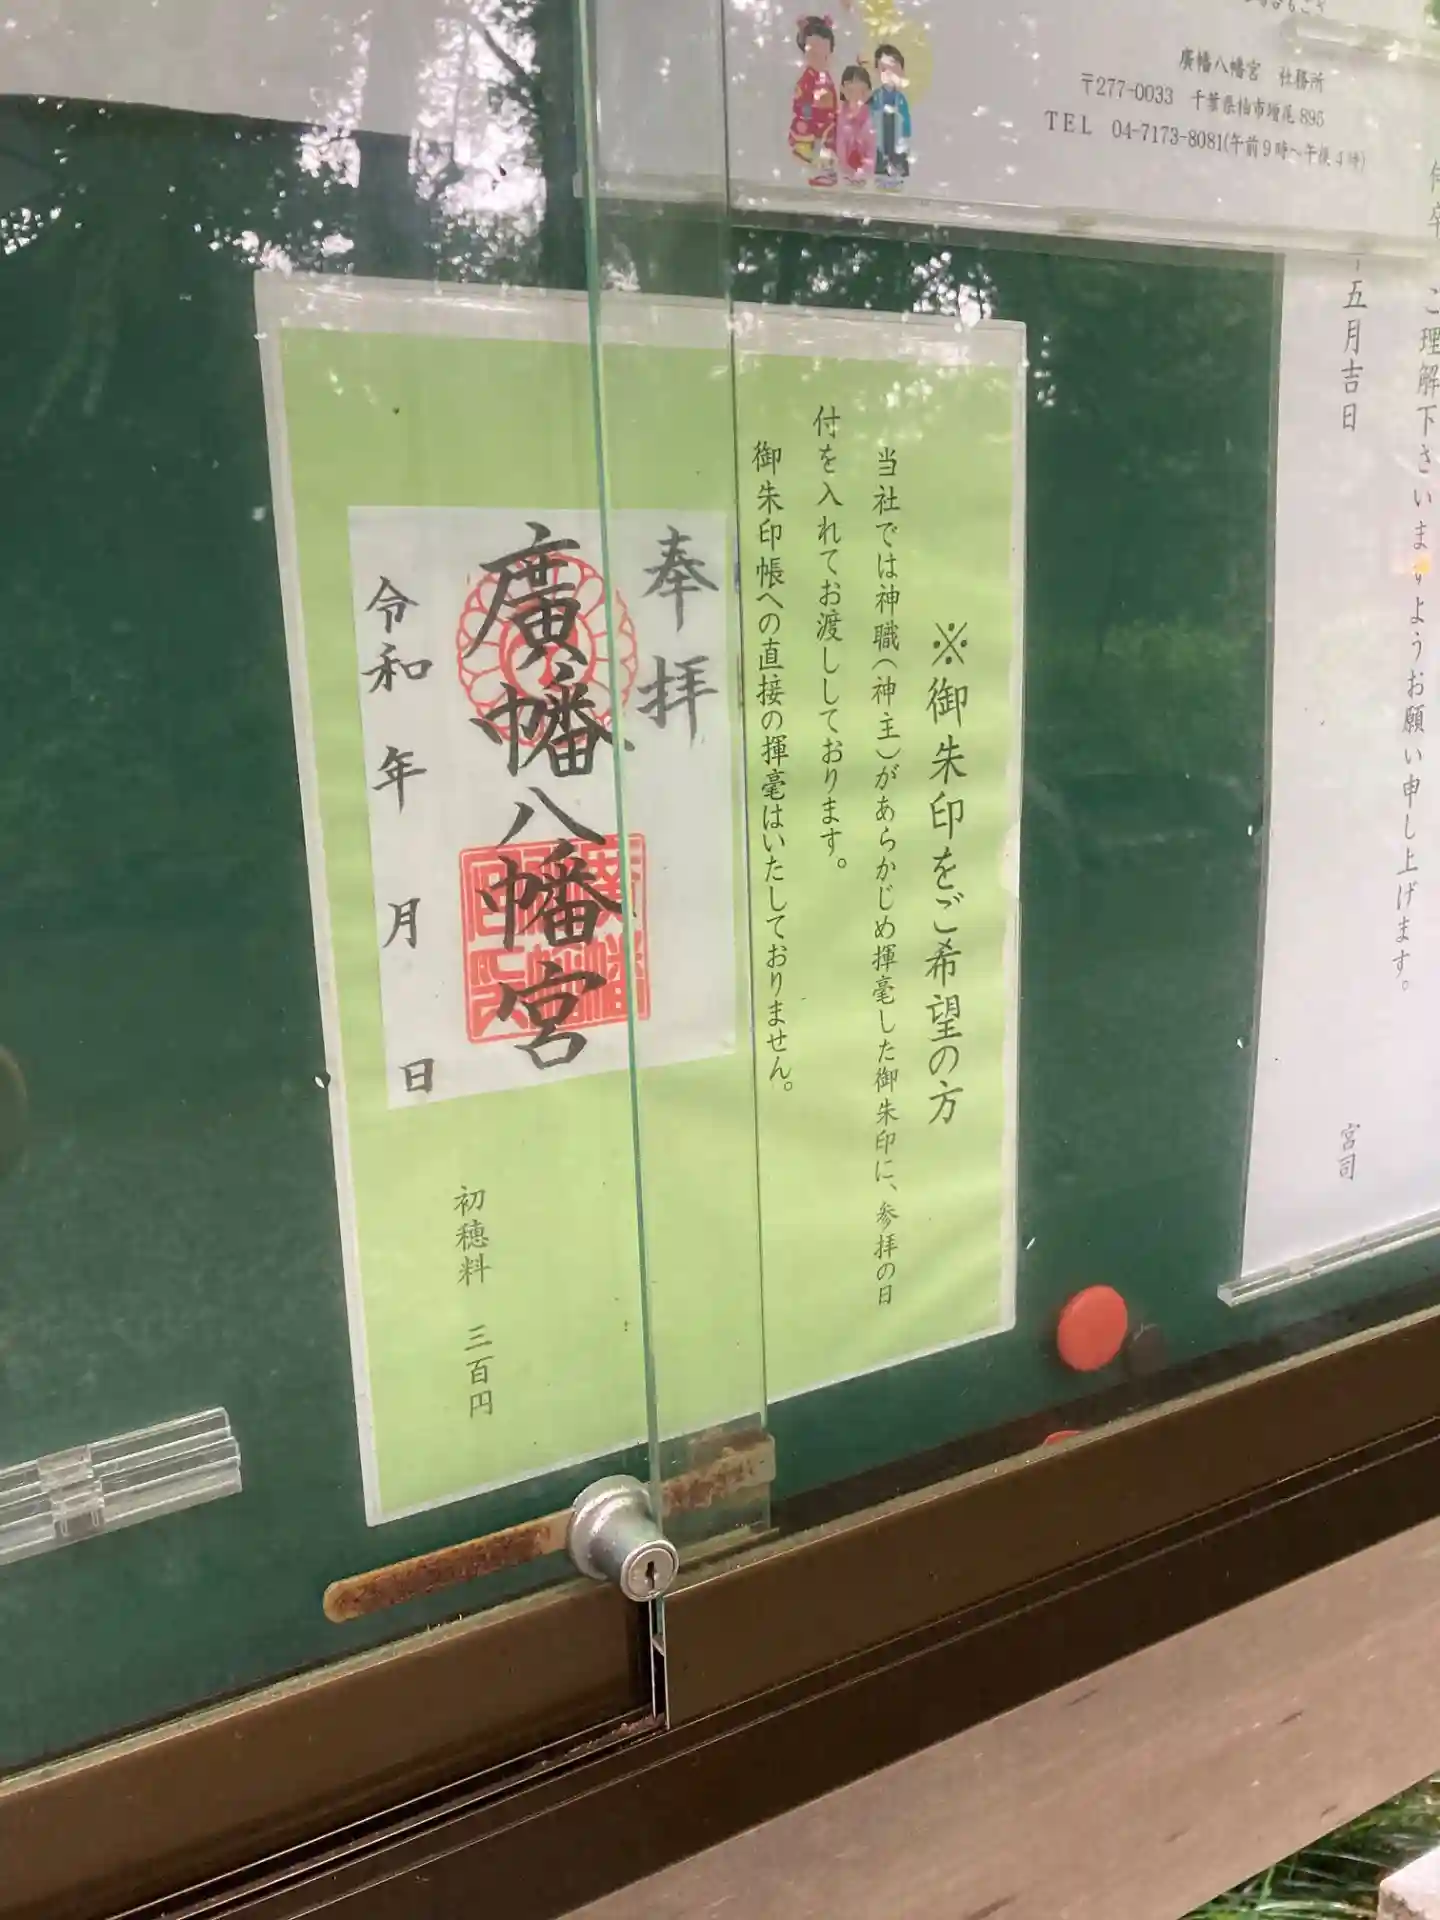 廣幡八幡宮 社務所
〒277-0033 千葉県柏市増尾895
TEL 04-7173-8081(午前9時～午後4時)
ご理解下さいますようお願い申し上げます。
五月吉日
宮司
※御朱印をご希望の方
当社では神職(神主)があらかじめ揮毫した御朱印に、参拝の日
付を入れてお渡ししております。
御朱印帳への直接の揮毫はいたしておりません。
奉拝
廣幡八幡宮
令和 年 月 日
初穂料 三百円